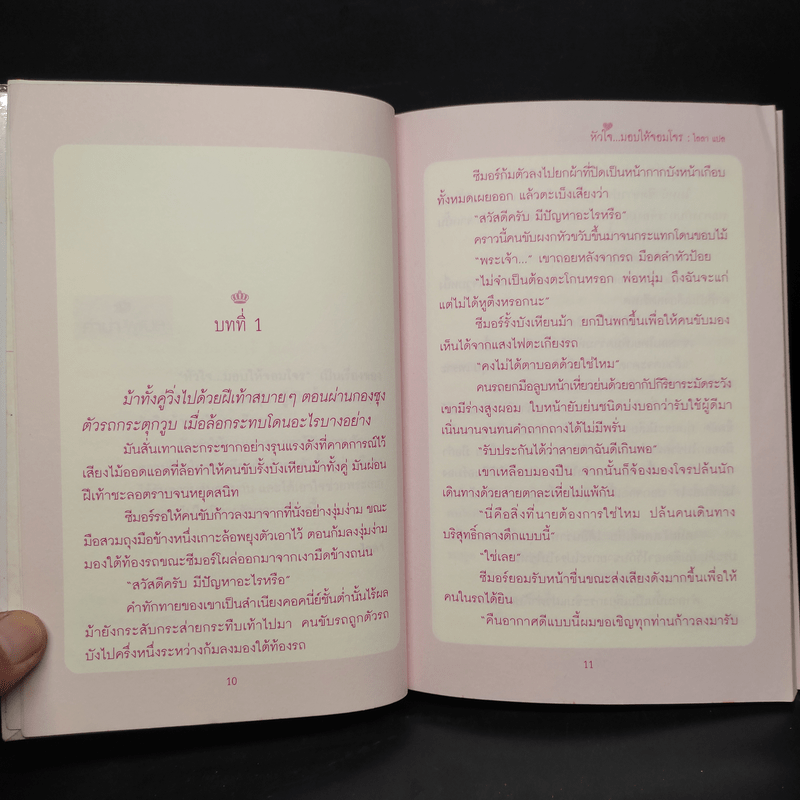 บทที่ 1
ม้าทั้งคู่วิ่งไปด้วยฝีเท้าสบายๆ ตอนผ่านกองซุง
ตัวรถกระตุกวูบ เมื่อล้อกระทบโดนอะไรบางอย่าง
มันสั่นเทาและกระชากอย่างรุนแรงดังที่คาดการณ์ไว้
เสียงไม้ออดแอดที่ล้อทำให้คนขับรั้งบังเหียนม้าทั้งคู่ มันผ่อน
ฝีเท้าชะลอตราบจนหยุดสนิท
ซีมอร์รอให้คนขับก้าวลงมาจากที่นั่งอย่างงุ่มง่าม ขณะ
มือสวมถุงมือข้างหนึ่งเกาะล้อพยุงตัวเอาไว้ ตอนก้มลงงุ่มง่าม
มองใต้ท้องรถขณะซีมอร์โผล่ออกมาจากเงามืดข้างถนน
"สวัสดีครับ มีปัญหาอะไรหรือ"
คำทักทายของเขาเป็นสำเนียงคอคนี่ย์ชั้นต่ำนั้นไร้ผล
ม้ายังกระสับกระส่ายกระทืบเท้าไปมา คนขับรถถูกตัวรถ
บังไปครึ่งหนึ่งระหว่างก้มลงมองใต้ท้องรถ
10
หัวใจ...มอบให้จอมโจร : ไอดา แปล
ซีมอร์ก้มตัวลงไปยกผ้าที่ปิดเป็นหน้ากากบังหน้าเกือบ
ทั้งหมดเผยออก แล้วตะเบ็งเสียงว่า
"สวัสดีครับ มีปัญหาอะไรหรือ"
คราวนี้คนขับผงกหัวขวับขึ้นมาจนกระแทกโดนขอบไม้
"พระเจ้า..." เขาถอยหลังจากรถ มือคลำหัวป้อย
"ไม่จำเป็นต้องตะโกนหรอก พ่อหนุ่ม ถึงฉันจะแก่
แต่ไม่ได้หูตึงหรอกนะ"
ซีมอร์รั้งบังเหียนม้า ยกปืนพกขึ้นเพื่อให้คนขับมอง
เห็นได้จากแสงไฟตะเกียงรถ
"คงไม่ได้ตาบอดด้วยใช่ไหม"
คนรถยกมือลูบหน้าเหี่ยวย่นด้วยอากัปกิริยาระมัดระวัง
เขามีร่างสูงผอม ใบหน้ายับย่นชนิดบ่งบอกว่ารับใช้ผู้ดีมา
เนิ่นนานจนทนคำถากถางได้ไม่มีพรั่น
"รับประกันได้ว่าสายตาฉันดีเกินพอ"
เขาเหลือบมองปืน จากนั้นก็จ้องมองโจรปล้นนัก
เดินทางด้วยสายตาละเหี่ยไม่แพ้กัน
"นี่คือสิ่งที่นายต้องการใช่ไหม ปล้นคนเดินทาง
บริสุทธิ์กลางดึกแบบนี้"
"ใช่เลย"
ซีมอร์ยอมรับหน้าชื่นขณะส่งเสียงดังมากขึ้นเพื่อให้
คนในรถได้ยิน
"คืนอากาศดีแบบนี้ผมขอเชิญทุกท่านก้าวลงมารับ
11